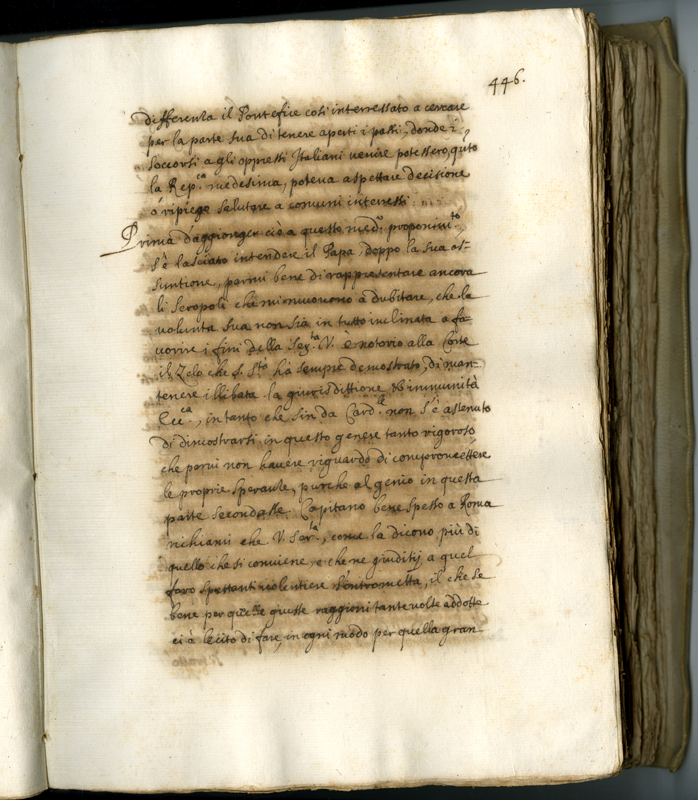 446.
differenza il Pontefice così interressato a cercare
per la parte sua di tenere aperti i passi, donde i
soccorsi a gli oppressi Italiani venire potessero, q.to
la Rep.ca medesima, poteva aspettare decisione
ò ripiego salutare a comuni interessi.
Prima d'aggionger ciò a questo med.o proponim.to
s'è lasciato intendere il Papa, doppo la sua as-
suntione, parmi bene di rappresentare ancora
li scropoli che mi muovono a dubitare, che la
volunta sua non sia in tutto inclinata a fa-
vorire i fini della Ser.ta V. è notorio alla Corte
il Zelo che S. S.tà hà sempre demostrato, di man-
tenere illibata la giurisdittione & immunità
Ecc.ca, intanto che sin da Card.le non s'è astenuto
di dimostrarsi in questo genere tanto rigoroso
che parvi non havere riguardo di compromettere
le proprie speranze, purche al genio in questa
parte secondasse. Capitano bene spesso a Roma
richiami che V. Ser.ta, come la dicono più di
quello che si conviene, e che ne giuditij a quel
foro spettanti volentiere s'intrometta, il che se
bene per queste giuste raggioni tante volte addotte
ci è lecito di fare, in ogni modo per quella gran